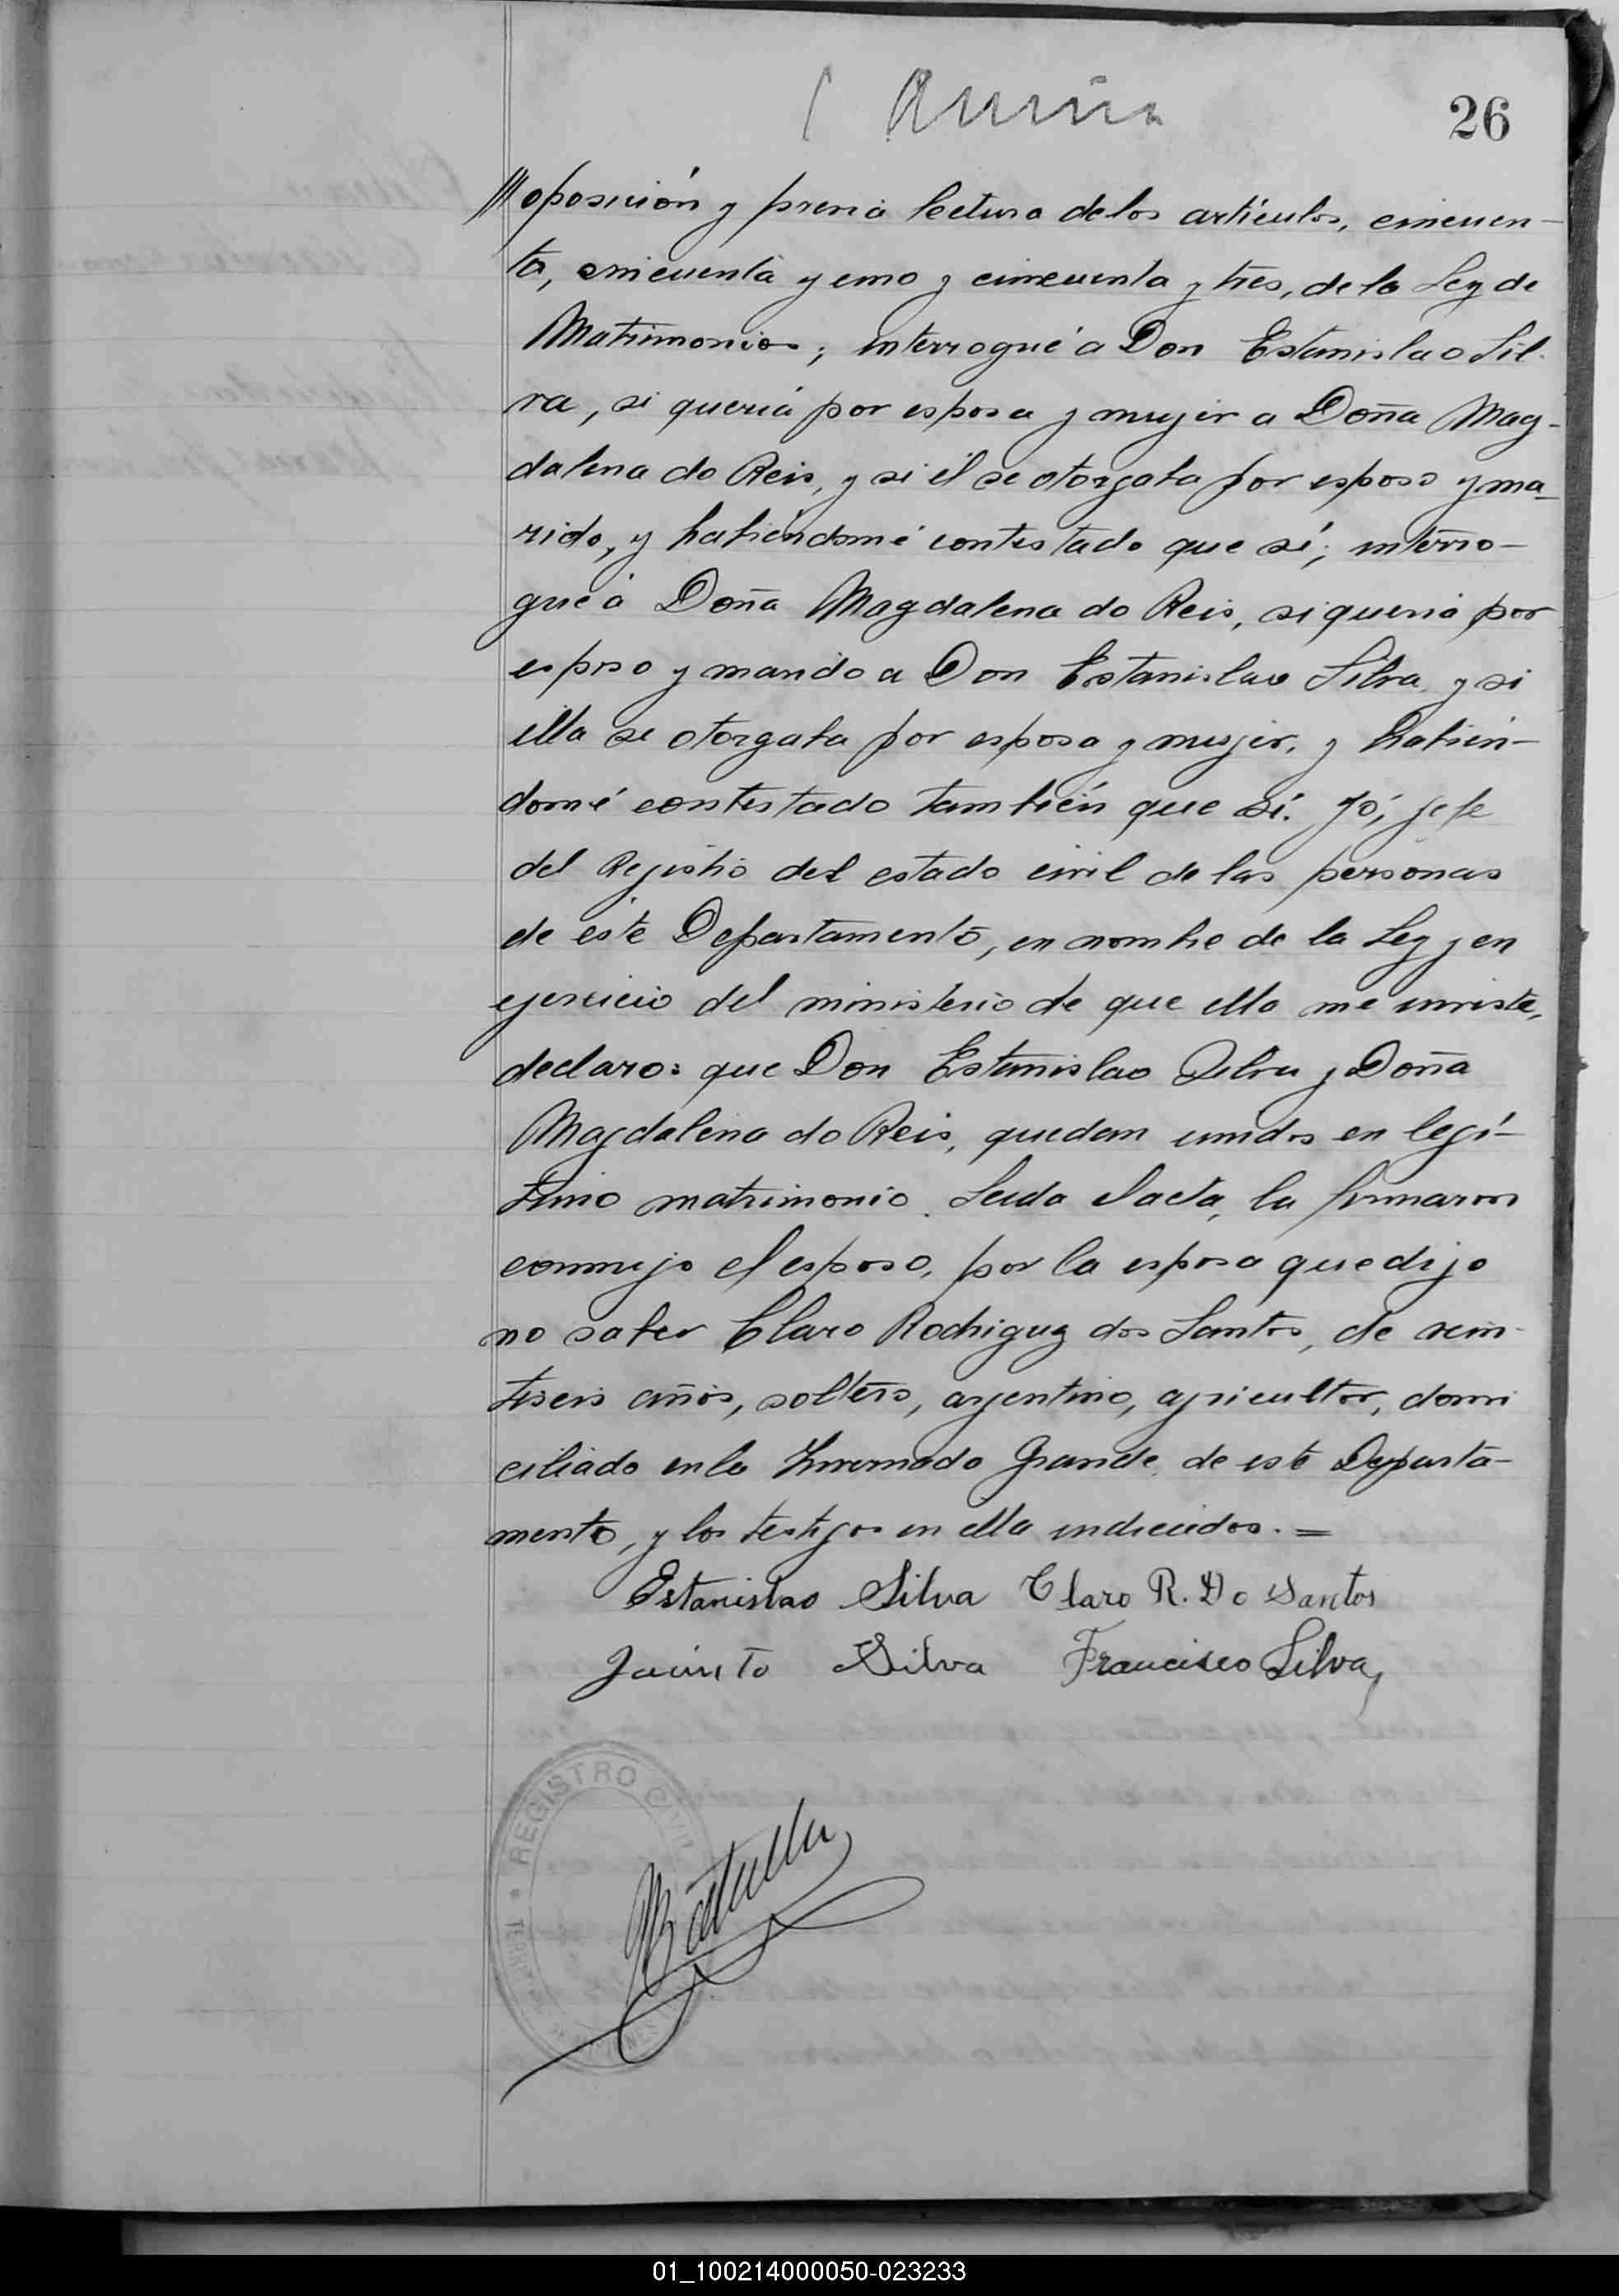 26
oposición y previa lectura de los artículos, cincuen-
ta, cincuenta y uno y cincuenta y tres, de la Ley de
Matrimonios; interrogué a Don Estanislao Sil-
va, si quería por esposa y mujer a Doña Mag-
dalena do Reis, y si él se otorgaba por esposo y ma-
rido, y habiéndomé contestado que sí; interro-
gué a Doña Magdalena do Reis, si quería por
esposo y marido a Don Estanislao Silva, y si
ella se otorgaba por esposa y mujer, y habién-
domé contestado también que sí. Yó, jefe
del Registro del estado civil de las personas
de este Departamento, en nombre de la Ley y en
ejercicio del ministerio de que ella me inviste,
declaro: que Don Estanislao Silva y Doña
Magdalena do Reis, quedan unidos en legí-
timo matrimonio. Leida el acta, la firmaron
conmigo el esposo, por la esposa que dijo
no saber Claro Rodriguez dos Santos, de vein-
tiseis años, soltero, argentino, agricultor, domi
ciliado en la Invernada Grande, de este Departa-
mento, y los testigos en ella indicados. =
Estanislao Silva Claro R. Do Santos
Jacinto Silva Francisco Silva
REGISTRO CIVIL
01_100214000050-023233